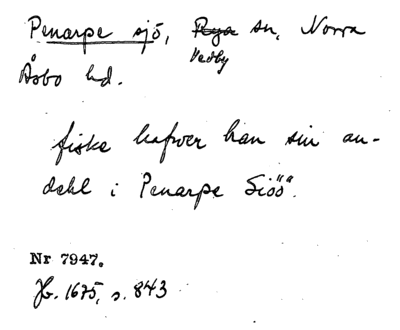 Penarpe sjö, Rya sn, Norra
Vedby
Åsbo hd.
fiske hafwer han sin an-
dehl i Penarpe Siöö".
Nr 7947.
Jb. 1675, s. 843